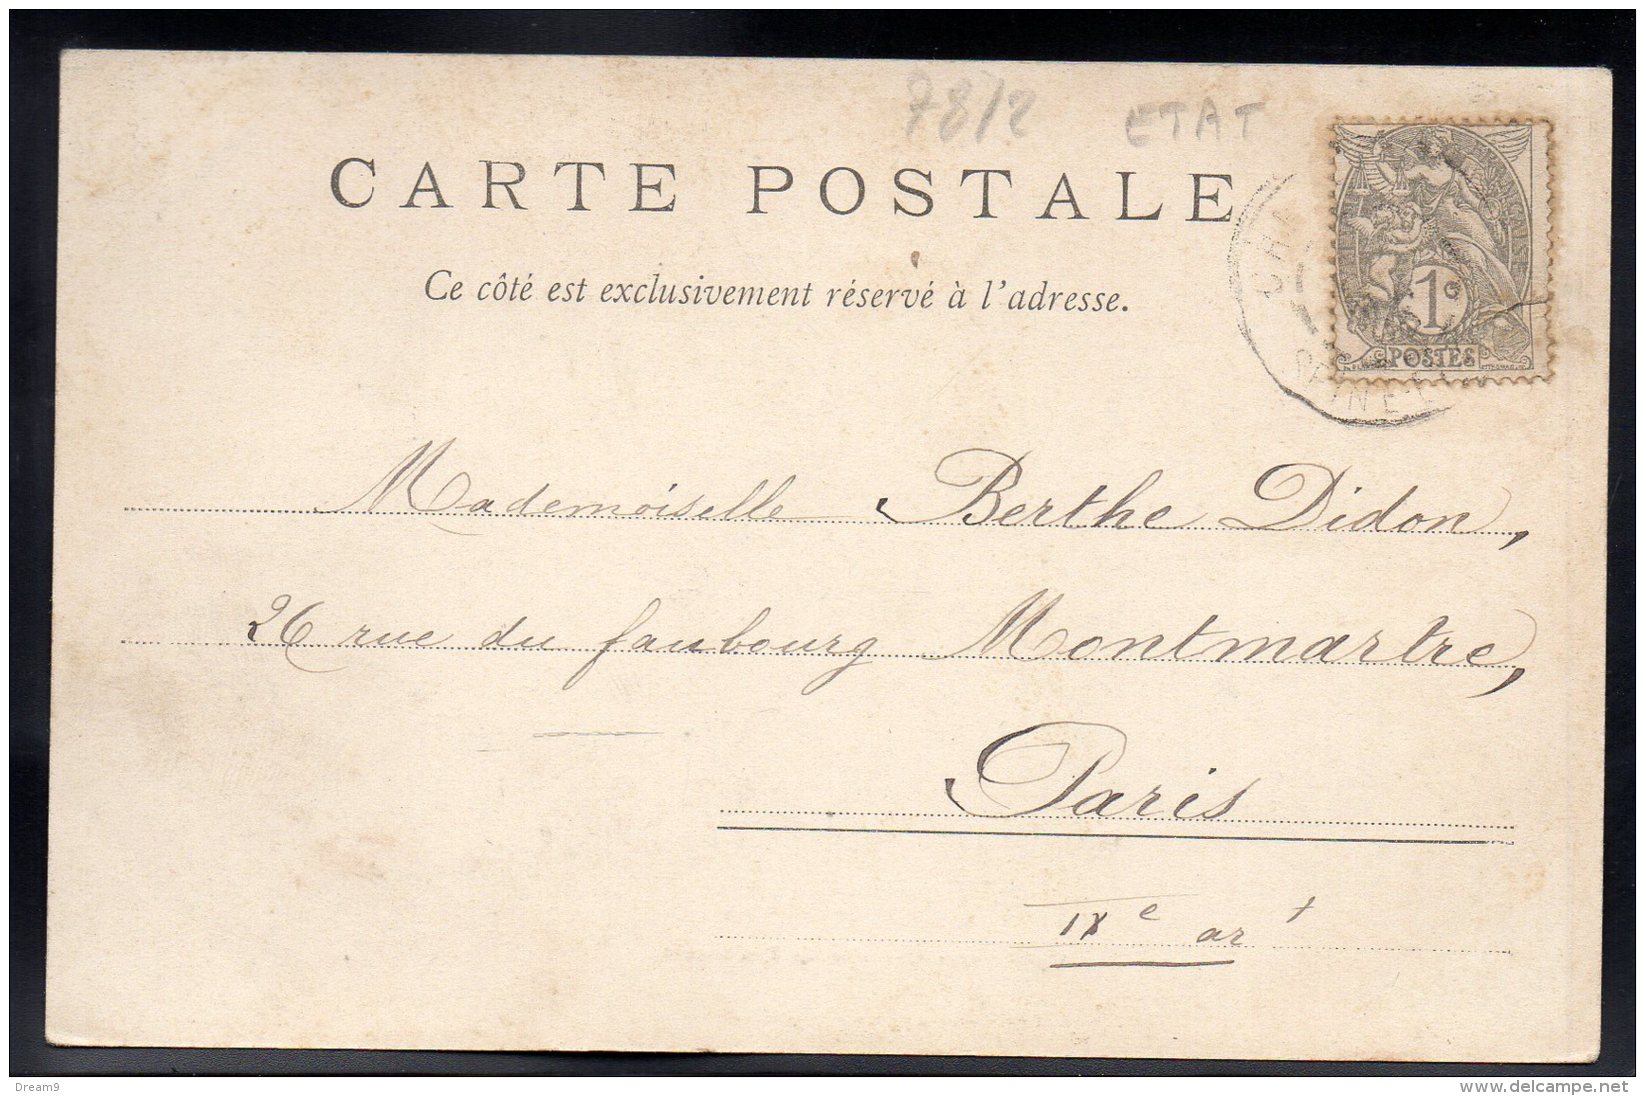 78/2 ETAT
CARTE POSTALE
Ce côté est exclusivement réservé à l'adresse.
1c
POSTES
Mademoiselle Berthe Didon,
26 rue du faubourg Montmartre,
Paris
IXe art
Dream9
www.delcampe.net